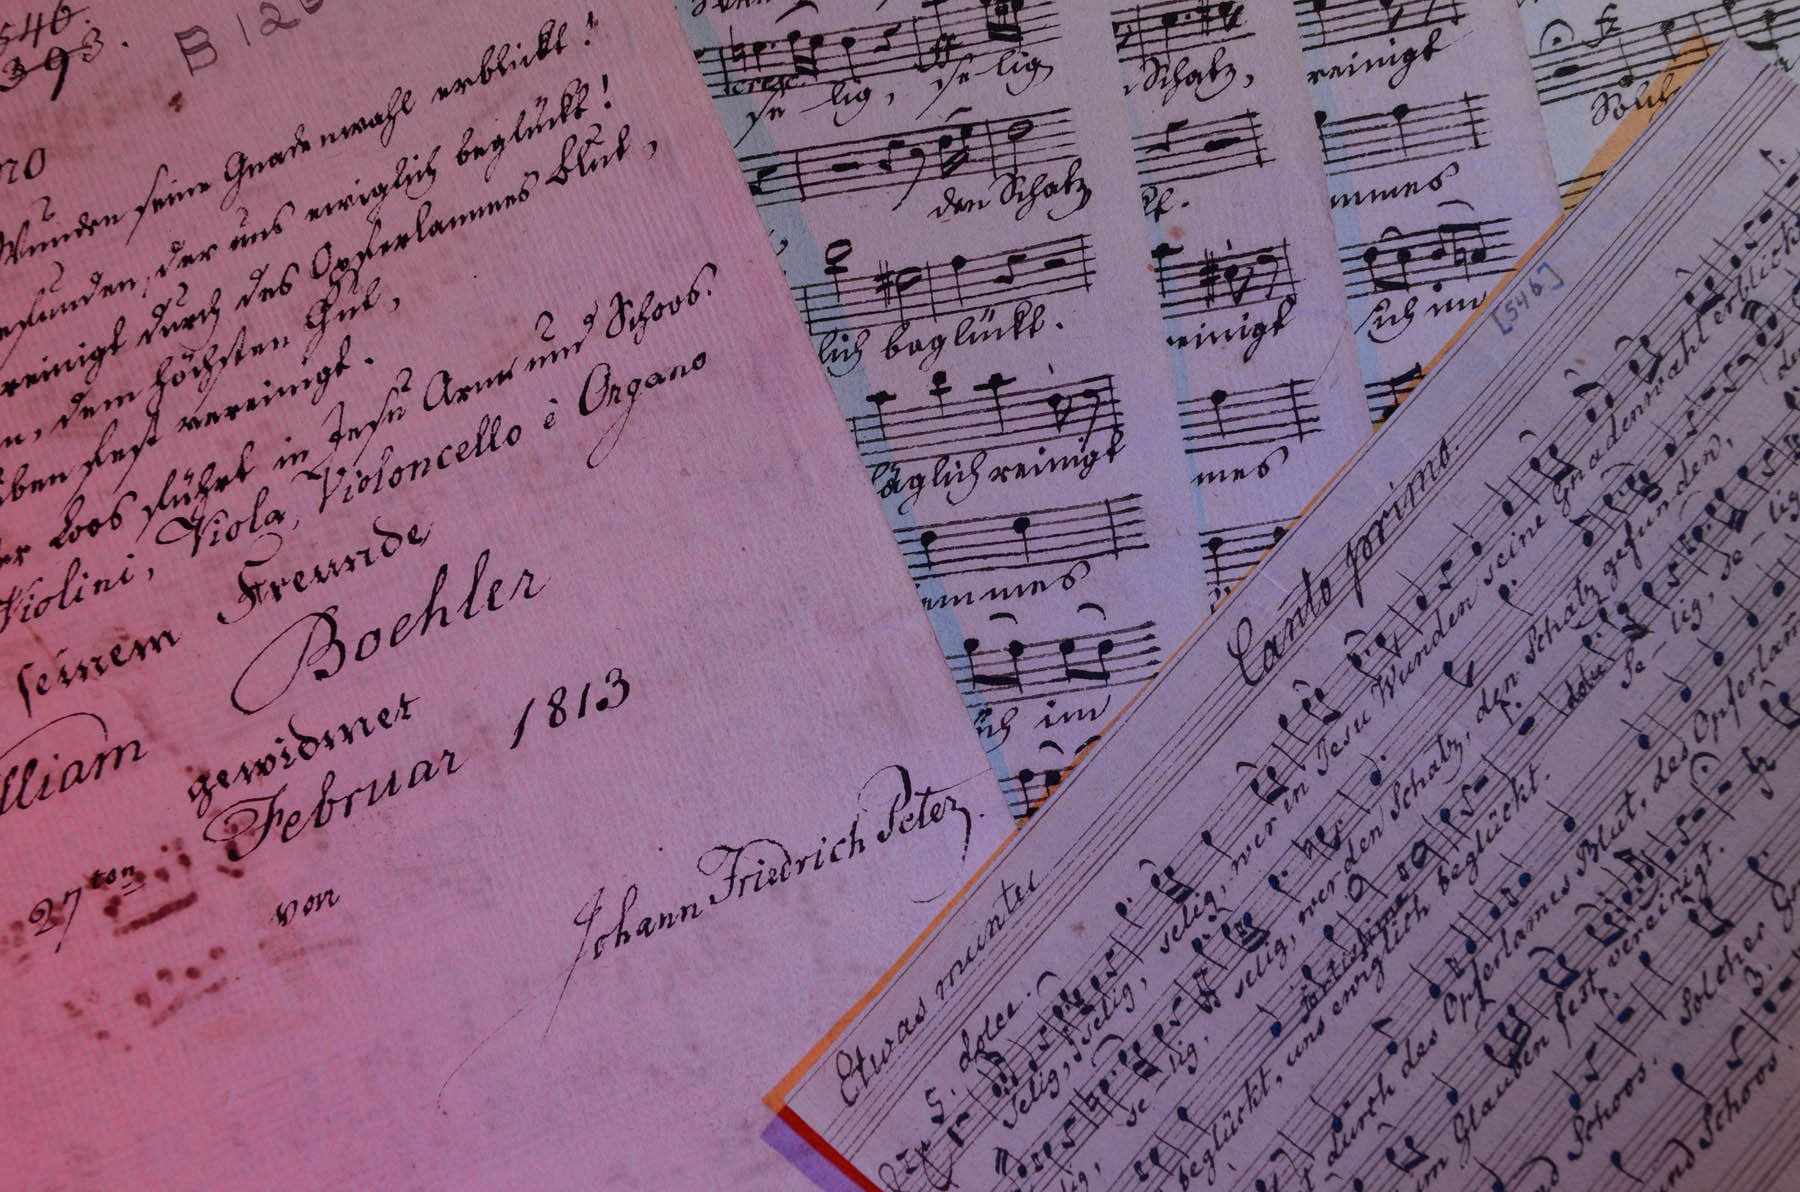 546
393.
B 126
no
Wunden seine Gnadenwahl erblickt!
gefunden, der uns ewiglich beglückt!
reinigt durch des Opferlammes Blut,
dem höchsten Gut,
fest vereinigt.
Loos führt in Jesu Arm und Schoos.
Violini, Viola, Violoncello è Organo
seinem Freunde
William Boehler
gewidmet
27ten Februar 1813
von
Johann Friedrich Peter.
cresc.
se lig, se lig
den Schatz
lich beglückt.
täglich reinigt
mmes
ich im
Schatz,
reinigt
mes
reinigt
mmes
sich im
Solch
[546]
Canto primo.
Etwas munter
dolce.
selig, selig, selig, wer in Jesu Wunden seine Gnadenwahl erblickt
se-lig, selig, wer den Schatz, den Schatz gefunden,
fortissimo dolce se-lig, se-lig
beglückt, uns ewiglich beglückt.
durch des Opferlammes Blut, des Opferlam
im Glauben fest vereinigt.
Solcher
und Schoos.
3.
und Schoos